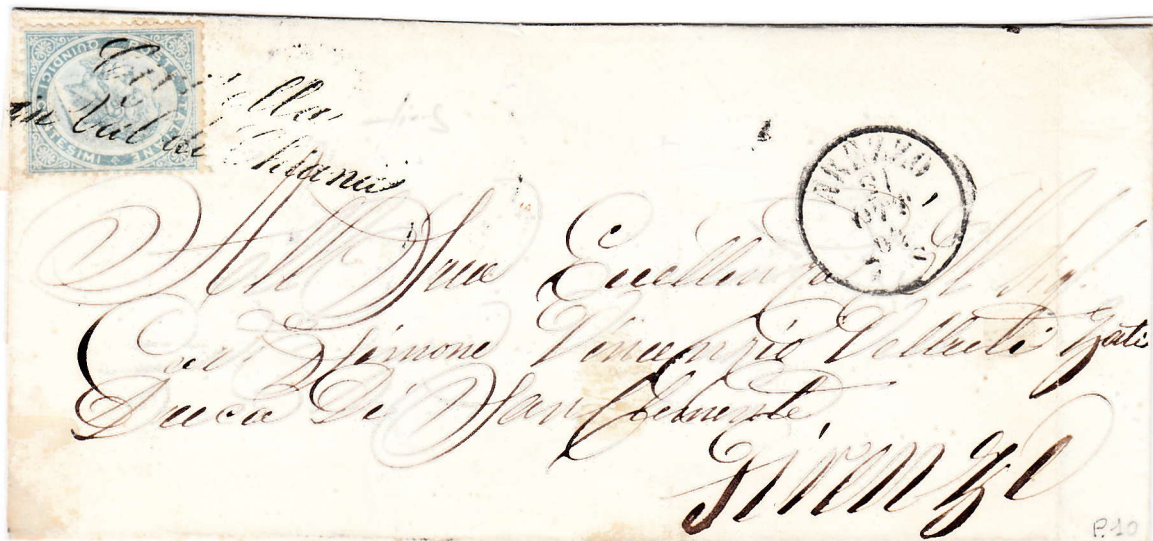 POSTE ITALIANE
QUINDICI CENTESIMI
Civitella
in Val di Chiana
AREZZO
31
OTT
All Sua Eccellenza Il Sig.
Cav Simone Vincenzio Velluti Zati
Duca Di San Clemente
Firenze
P.10